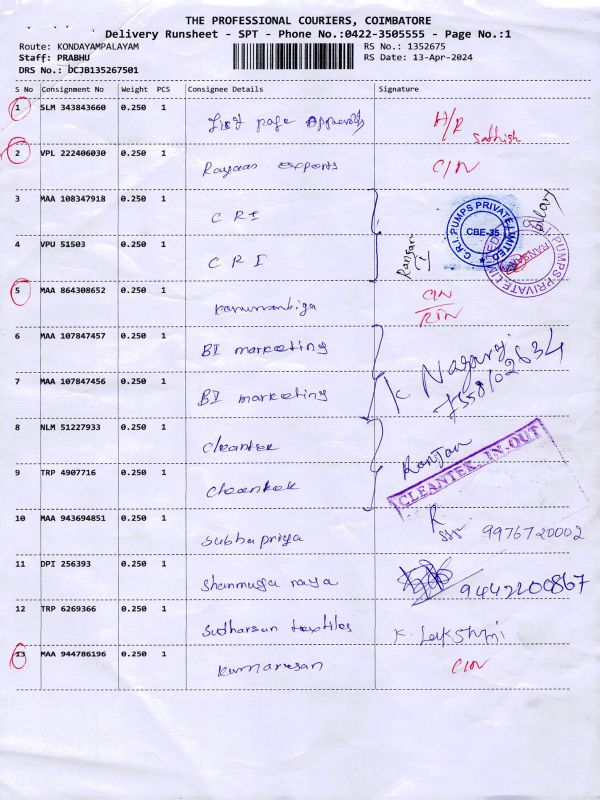 THE PROFESSIONAL COURIERS, COIMBATORE
Delivery Runsheet - SPT - Phone No.:0422-3505555 - Page No.:1
Route: KONDAYAMPALAYAM RS No.: 1352675
Staff: PRABHU RS Date: 13-Apr-2024
DRS No.: DCJB135267501
S No Consignment No Weight PCS Consignee Details Signature
1 SLM 343843660 0.250 1 First page Apparels H/R Sathish
2 VPL 222406030 0.250 1 Rayaan exports C/N
3 MAA 108347918 0.250 1 CRI
4 VPU 51503 0.250 1 CRI Ranjan
C.R.I. PUMPS PRIVATE LIMITED
CBE-35
C.R.I. PUMPS PRIVATE LIMITED
5 MAA 864308652 0.250 1 C/N
RTN
6 MAA 107847457 0.250 1 BI marketing
7 MAA 107847456 0.250 1 BI marketing K Nagaraj
8 NLM 51227933 0.250 1 cleantek Ranjan
9 TRP 4907716 0.250 1 cleantek CLEANTEK. IN.OUT
10 MAA 943694851 0.250 1 Subhapriya R 9976720002
11 DPI 256393 0.250 1 Shanmuga raya
12 TRP 6269366 0.250 1 Sudharsan textiles K. Lakshmi
13 MAA 944786196 0.250 1 Kumaresan C/N